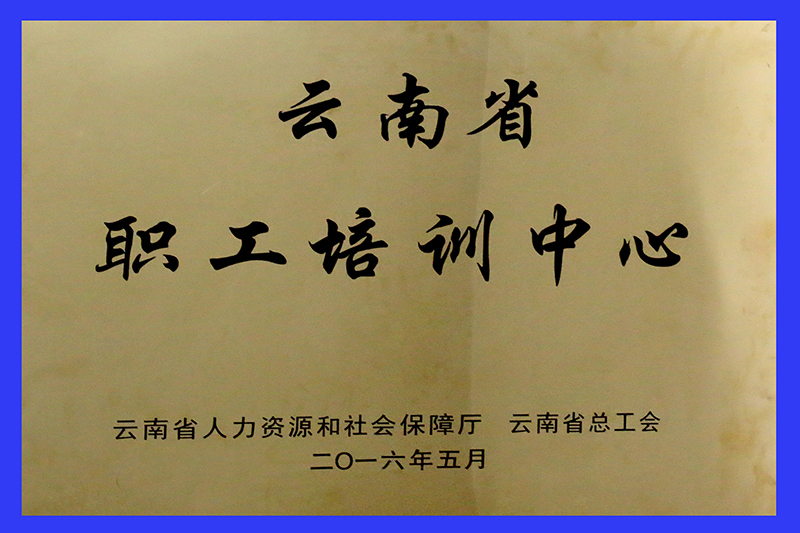 云南省
职工培训中心
云南省人力资源和社会保障厅 云南省总工会
二〇一六年五月